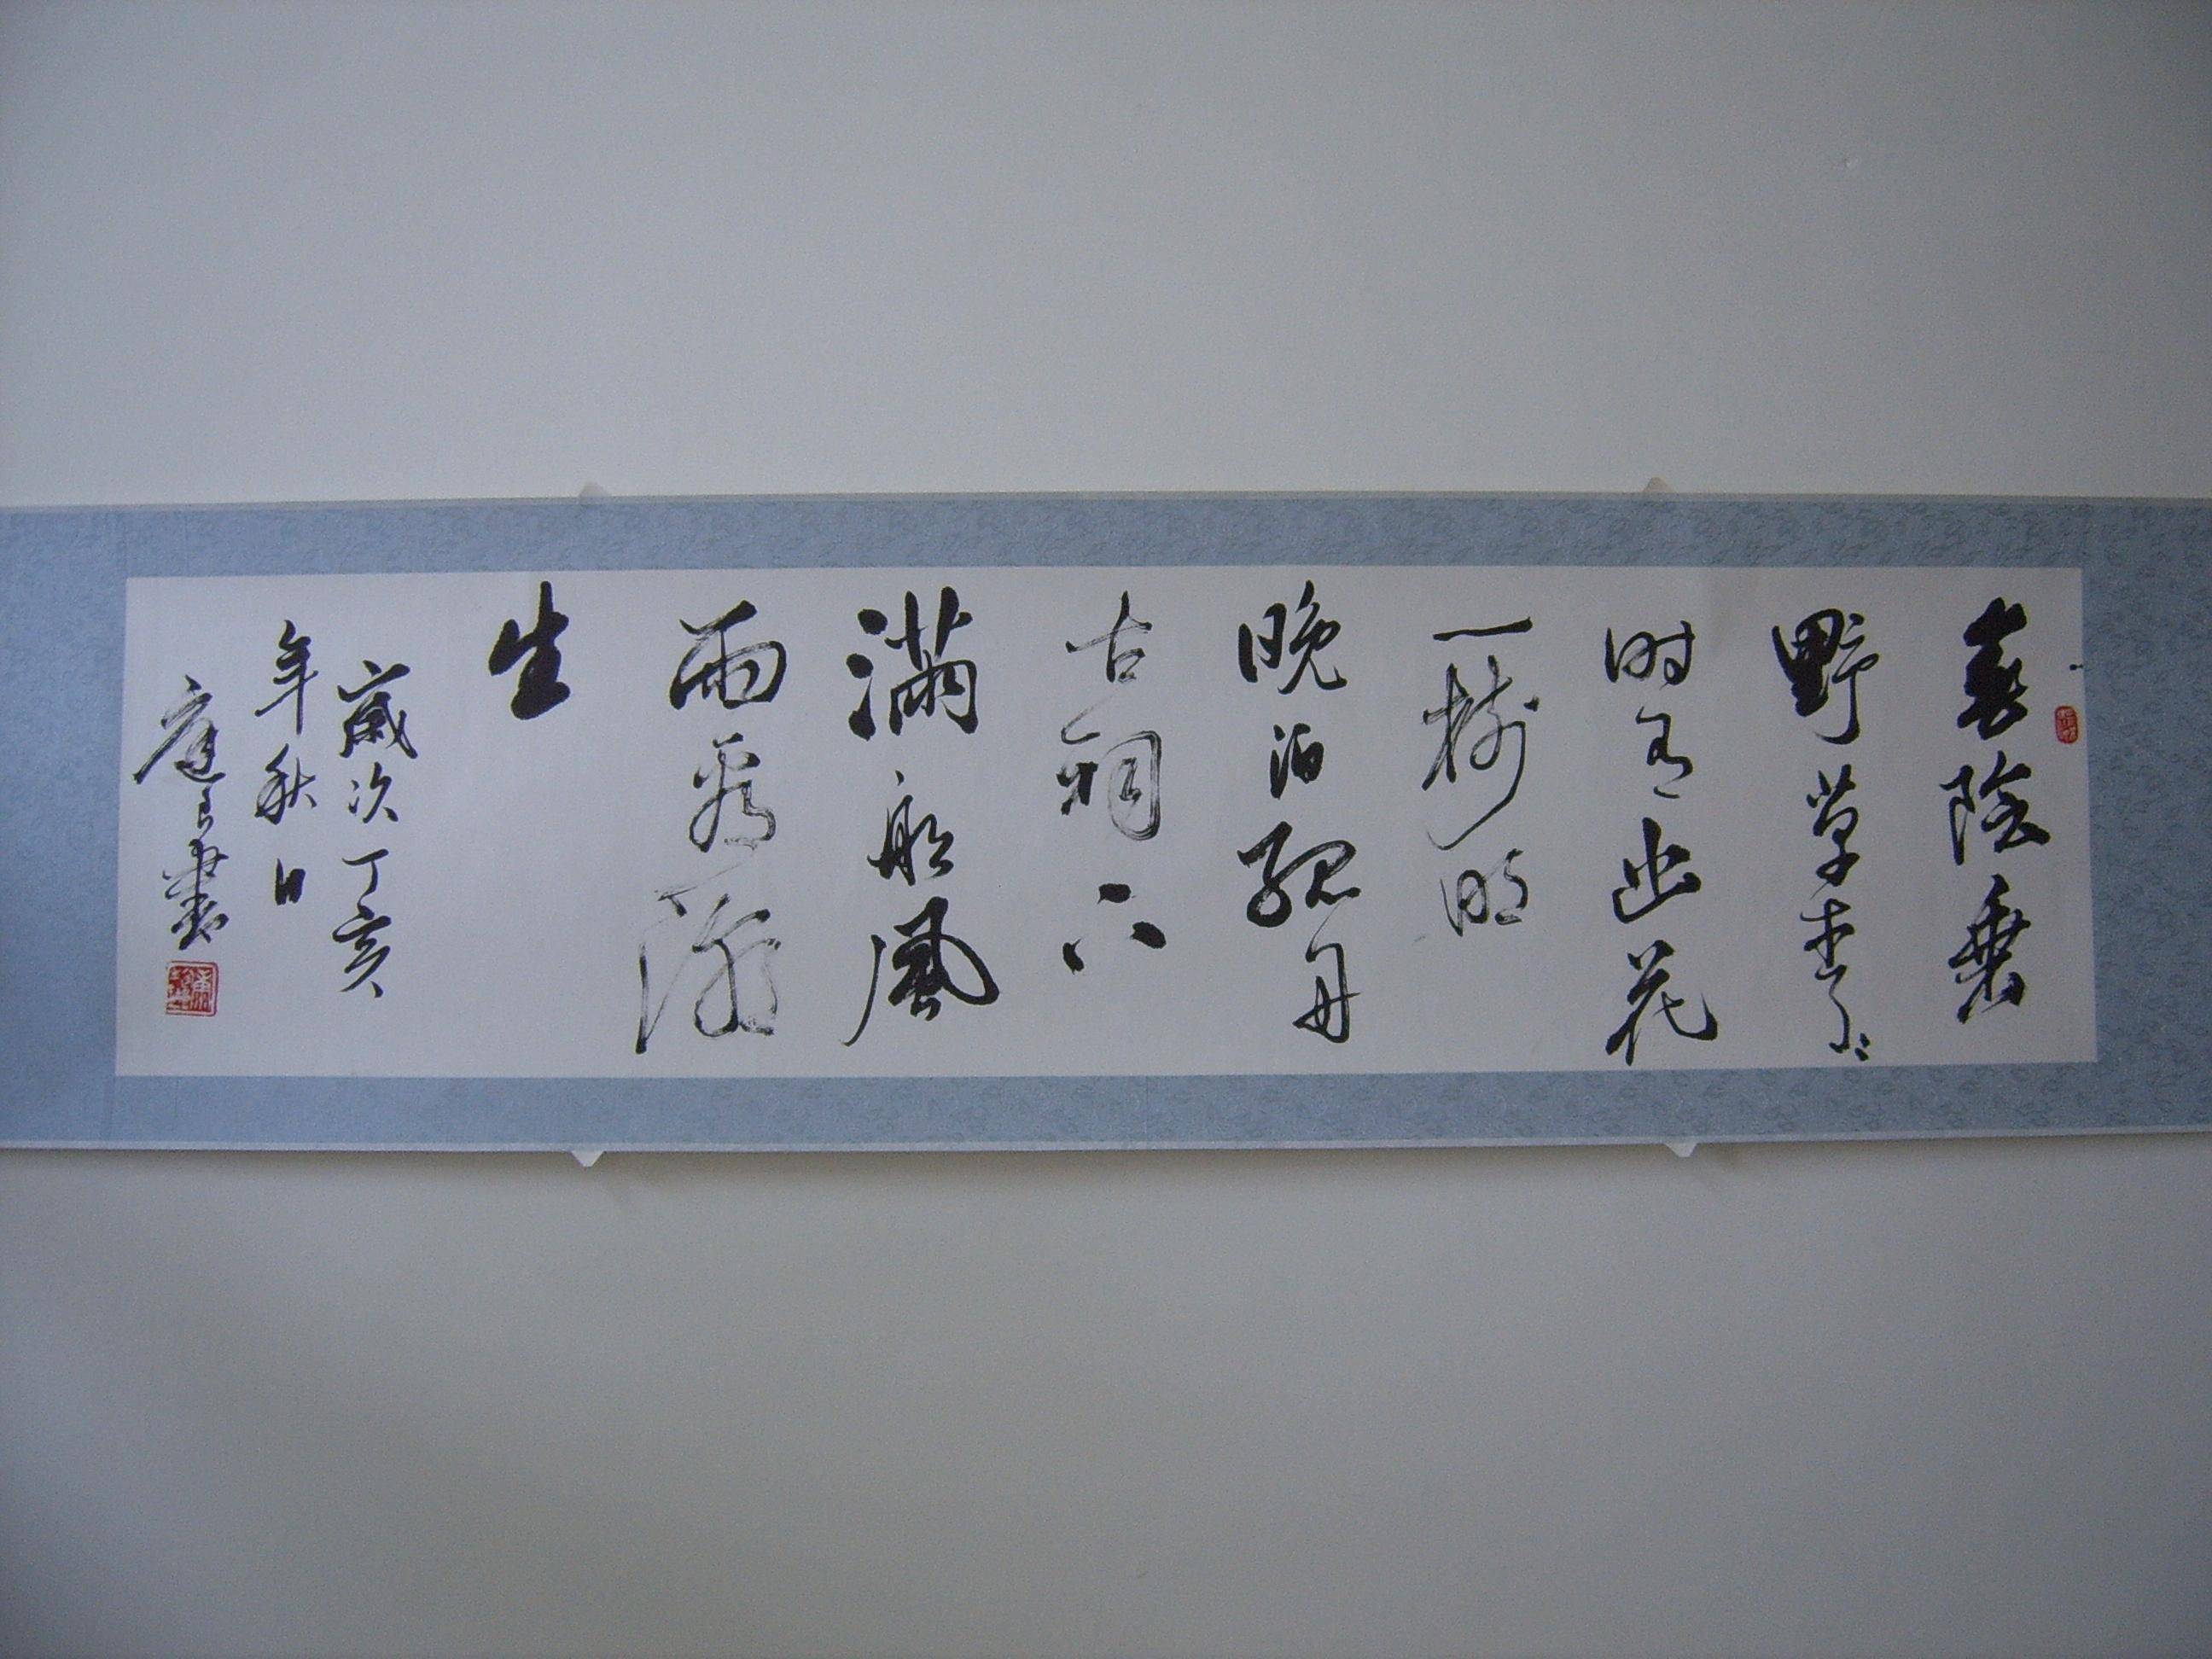 春陰垂
野草青々
时有幽花
一樹明
晚泊孤舟
古祠下
滿船風
雨看潮
生
歲次丁亥
年秋日
庭書